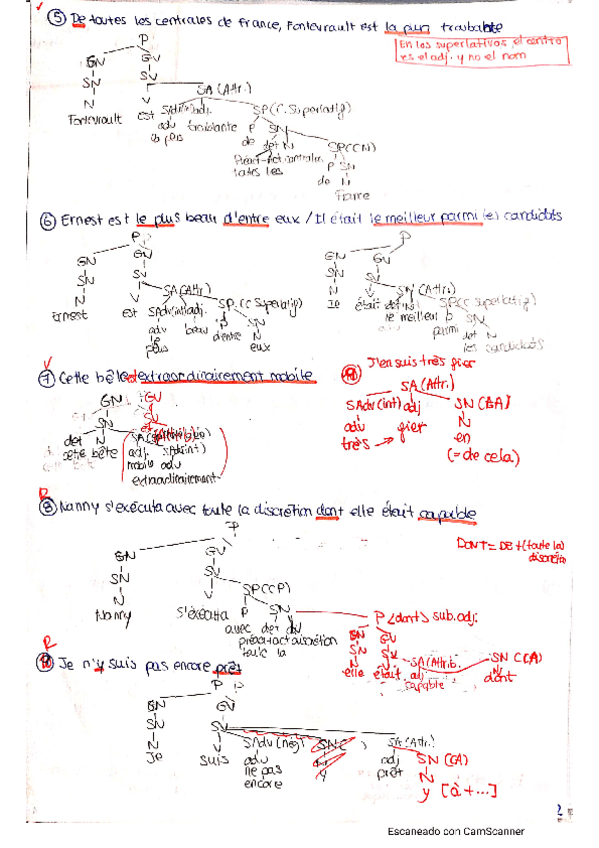 ⑤ De toutes les centrales de France, Fontevrault est la plus troublante
En los superlativos el centro
es el adj. y no el nom
P
GN GV
SN SV
N V SA (Attr.)
Fontevrault est SAdv(int) adj. SP (C. Superlatif)
adv troublante P SN
la plus de det N SP (CN)
Préart-Art centrales P SN
toutes les de N
France
⑥ Ernest est le plus beau d'entre eux / Il était le meilleur parmi les candidats
P P
GN GV GN GV
SN SV SN SV
N V SA (Attr.) N V SN (Attr.)
Ernest est SAdv(int) adj. SP. (C Superlatif) Il était det N SP (C Superlatif)
adv beau P SN le meilleur P SN
le d'entre N parmi det N
plus eux les candidats
⑦ Cette bête est extraordinairement mobile
J'en suis très fier
GN GV SA (Attr.)
SN SV SAdv (int) adj SN (CA)
det N adv fier N
cette bête adj. SAdv(int) très en
mobile adv (= de cela)
extraordinairement
R
⑧ Nanny s'exécuta avec toute la discrétion dont elle était capable
DONT = DE + (toute la)
discrétion
P
GN GV
SN SV
N V SP (CP)
Nanny s'exécuta P SN P <dont> sub.adj.
avec det N GN GV
préart-art discrétion SN SV
toute la N V SA (Attrib. SN (CA)
elle était adj N
capable dont
R
Je n'y suis pas encore prêt
P
GN GV
SN SV
N V SAdv (nég) SA (Attr.)
Je suis adv adj SN (CA)
ne pas prêt N
encore y [à + ...]
2
Escaneado con CamScanner